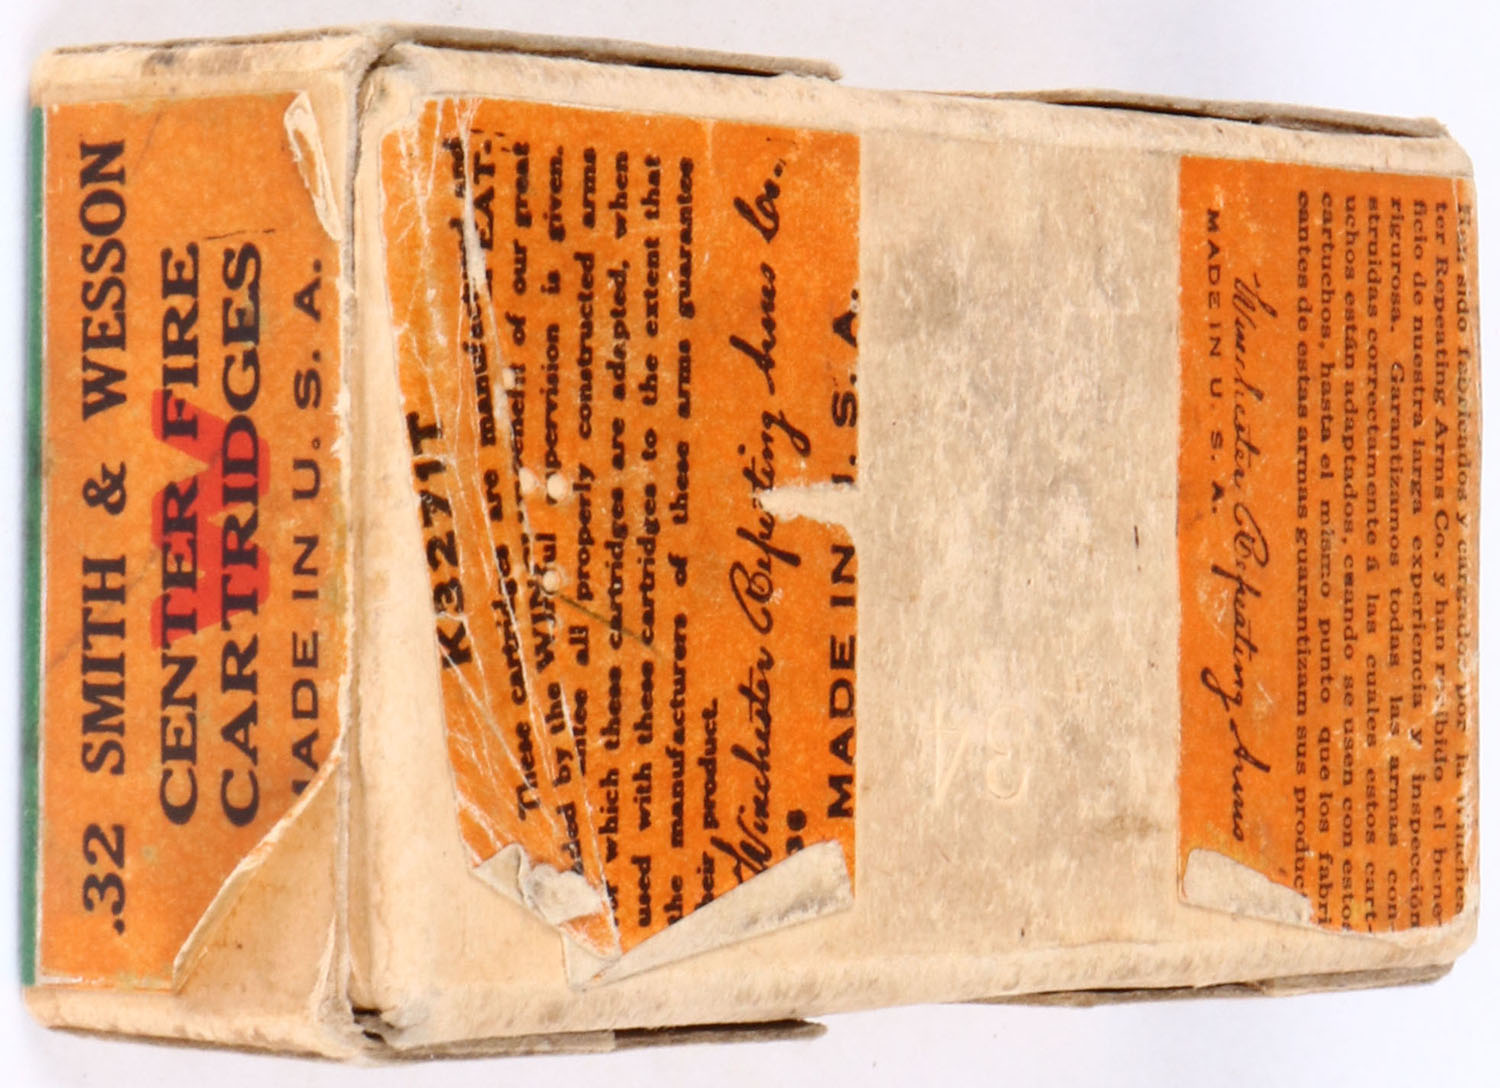 .32 SMITH & WESSON
CENTER FIRE
CARTRIDGES
W
MADE IN U. S. A.
K3271T
These cartridges are
by the
all properly constructed arms
which these cartridges are adapted, when
used with these cartridges to the extent that
the manufacturers of these arms guarantee
their product.
Winchester Repeating Arms Co.
MADE IN U. S. A.
34
Han sido fabricados y cargados por la
ter Repeating Arms Co. y han recibido el bene-
ficio de nuestra larga experiencia y inspección
rigurosa. Garantizamos todas las armas con-
struidas correctamente á las cuales estos cart-
uchos están adaptados, cuando se usen con estos
cartuchos, hasta el mismo punto que los fabri
cantes de estas armas guarantizam sus produc
Winchester Repeating Arms
MADE IN U. S. A.